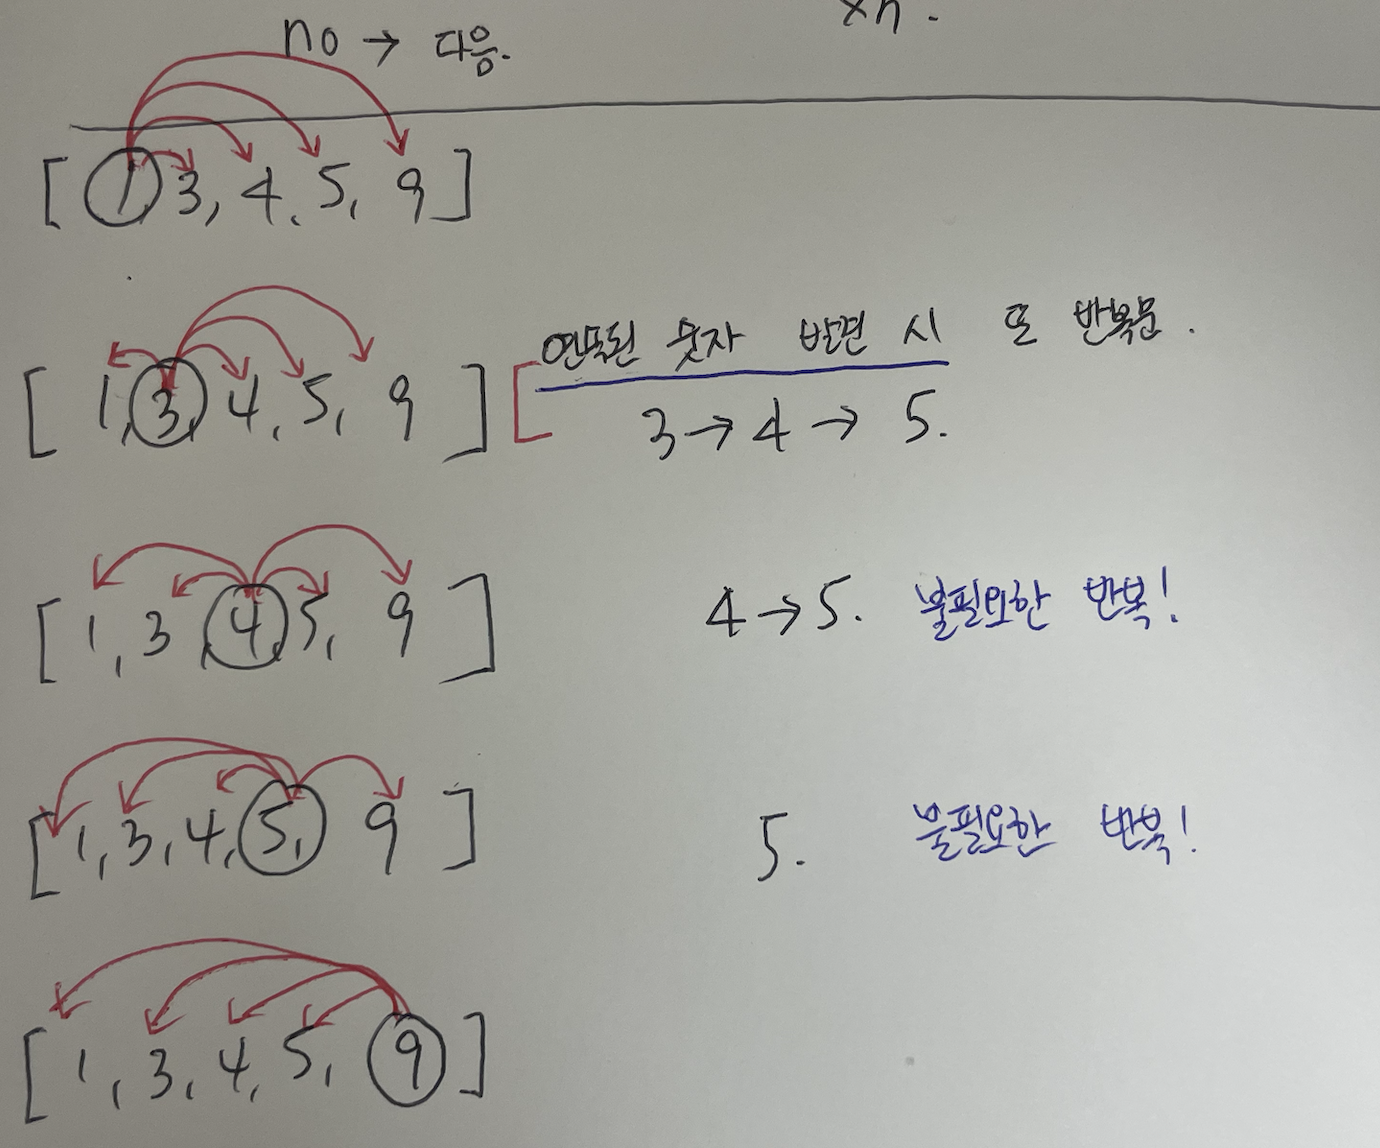 no → 다음.
xn.
[ 1, 3, 4, 5, 9 ]
연속된 숫자 발견 시 또 반복문.
[ 1, 3, 4, 5, 9 ] [ 3 → 4 → 5.
[ 1, 3, 4, 5, 9 ] 4 → 5. 불필요한 반복!
[ 1, 3, 4, 5, 9 ] 5. 불필요한 반복!
[ 1, 3, 4, 5, 9 ]